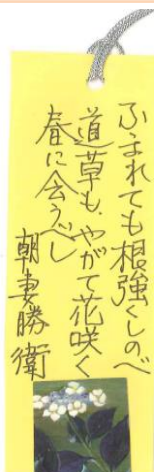 ふまれても根強くしのべ
道草も、やがて花咲く
春に会うべし
朝妻勝衛